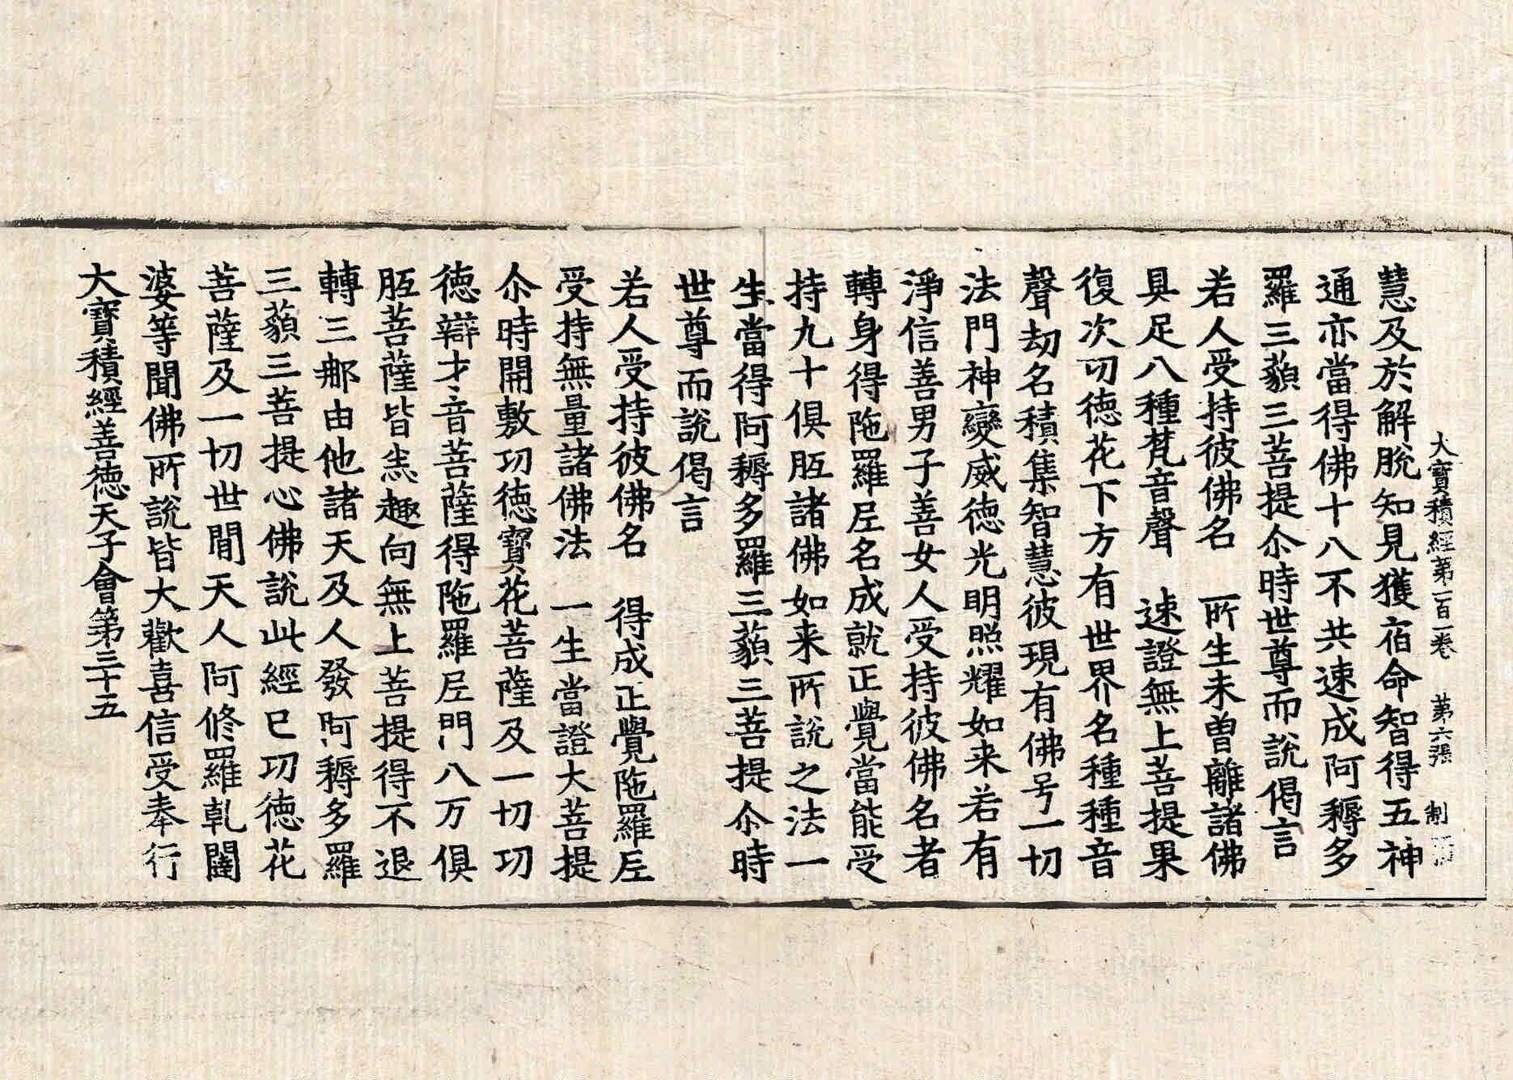 大寶積經第一百一卷　第六張　制
慧及於解脫知見獲宿命智得五神
通亦當得佛十八不共速成阿耨多
羅三藐三菩提尒時世尊而說偈言
若人受持彼佛名　所生未曾離諸佛
具足八種梵音聲　速證無上菩提果
復次功德花下方有世界名種種音
聲劫名積集智慧彼現有佛号一切
法門神變威德光明照耀如来若有
淨信善男子善女人受持彼佛名者
轉身得陁羅尼名成就正覺當能受
持九十俱胝諸佛如来所說之法一
生當得阿耨多羅三藐三菩提尒時
世尊而說偈言
若人受持彼佛名　得成正覺陁羅尼
受持無量諸佛法　一生當證大菩提
尒時開敷功德寶花菩薩及一切功
德辯才音菩薩得陁羅尼門八万俱
胝菩薩皆悉趣向無上菩提得不退
轉三那由他諸天及人發阿耨多羅
三藐三菩提心佛說此經已功德花
菩薩及一切世間天人阿修羅乹闥
婆等聞佛所說皆大歡喜信受奉行
大寶積經善德天子會第三十五